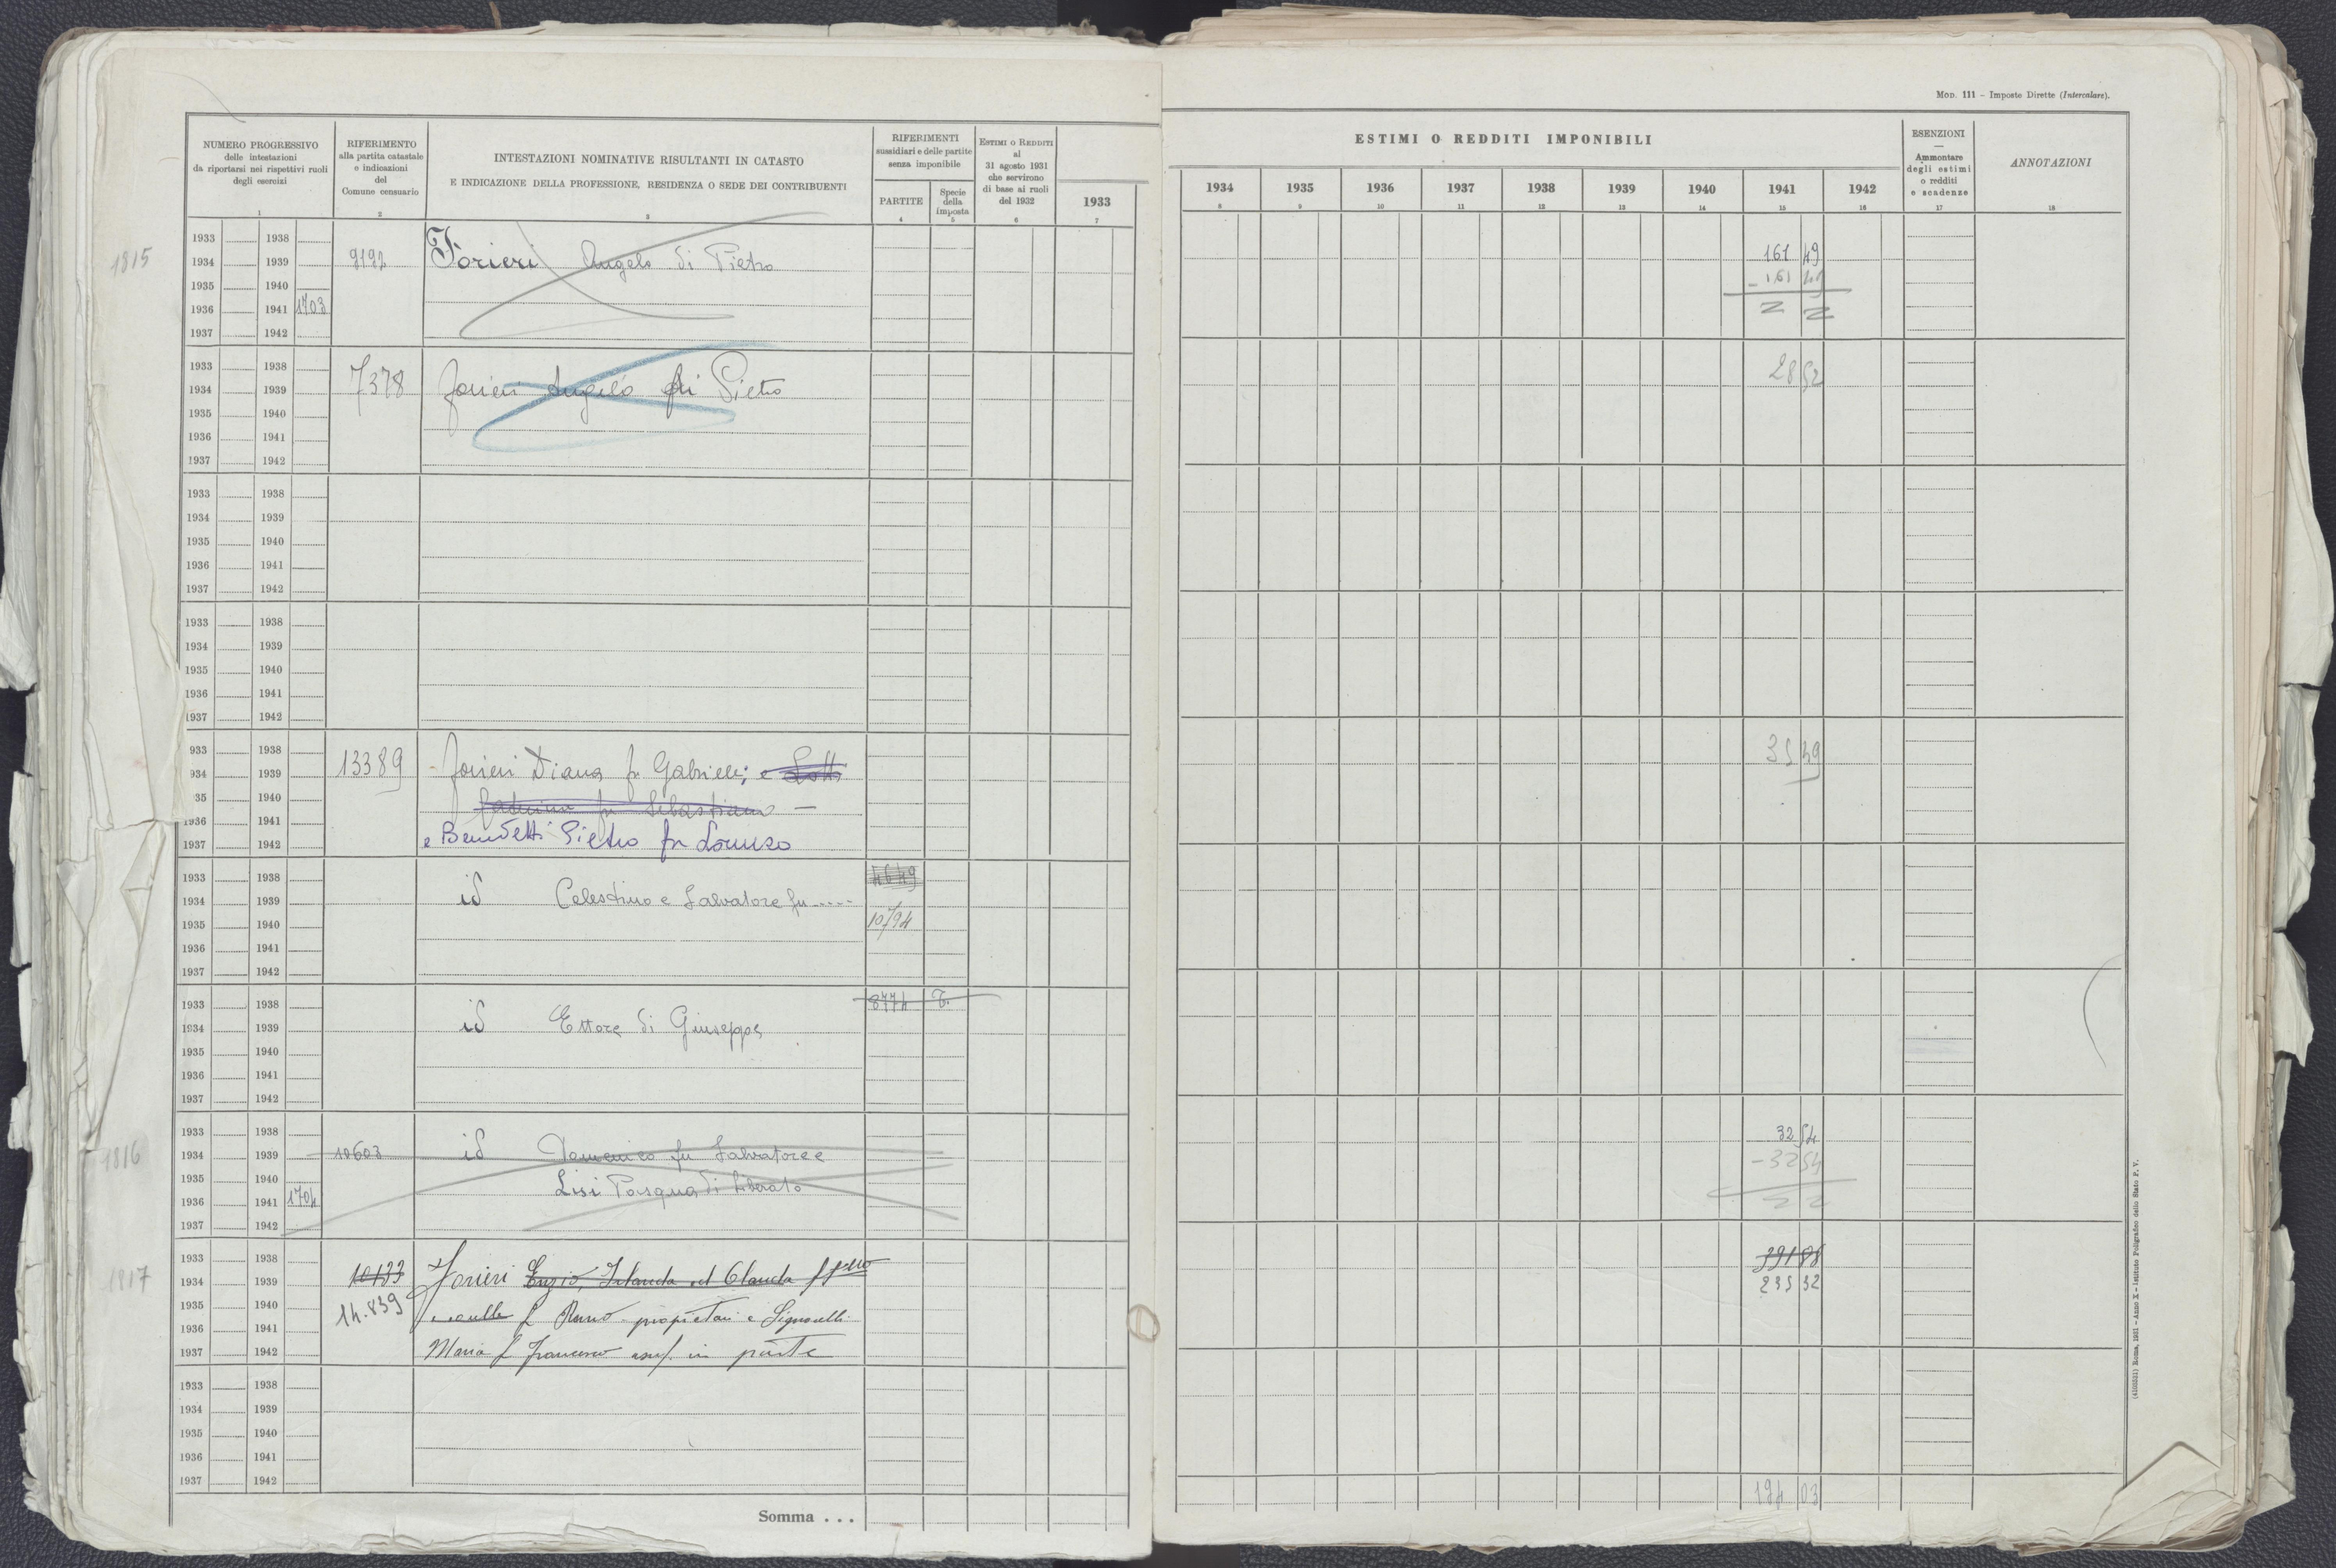 Mod. 111 – Imposte Dirette (Intercalare).
NUMERO PROGRESSIVO
delle intestazioni
da riportarsi nei rispettivi ruoli
degli esercizi
1
RIFERIMENTO
alla partita catastale
e indicazioni
del
Comune censuario
2
INTESTAZIONI NOMINATIVE RISULTANTI IN CATASTO
E INDICAZIONE DELLA PROFESSIONE, RESIDENZA O SEDE DEI CONTRIBUENTI
3
RIFERIMENTI
sussidiari e delle partite
senza imponibile
PARTITE
4
Specie
della
imposta
5
ESTIMI O REDDITI
al
31 agosto 1931
che servirono
di base ai ruoli
del 1932
6
ESTIMI O REDDITI IMPONIBILI
1933 1934 1935 1936 1937 1938 1939 1940 1941 1942
7 8 9 10 11 12 13 14 15 16
ESENZIONI
—
Ammontare
degli estimi
o redditi
e scadenze
17
ANNOTAZIONI
18
1815
1933 1938
1934 1939 9192 Forieri Angelo di Pietro 161 49
1935 1940 - 161 49
1936 1941 1703
1937 1942
1933 1938
1934 1939 7378 Forieri Angelo di Pietro 28 52
1935 1940
1936 1941
1937 1942
1933 1938
1934 1939
1935 1940
1936 1941
1937 1942
1933 1938
1934 1939
1935 1940
1936 1941
1937 1942
933 1938
934 1939 13389 - Forieri Diana fu Gabriele; e Lotti 35 49
35 1940 fu Sebastiano —
1936 1941
1937 1942 e Benedetti Pietro fu Lorenzo
1933 1938 4649
1934 1939 id Celestino e Salvatore fu -----
1935 1940 10794
1936 1941
1937 1942
1933 1938 8774 T.
1934 1939 id Ettore di Giuseppe
1935 1940
1936 1941
1937 1942
1816
1933 1938 32 54
1934 1939 10603 id Domenico fu Salvatore e - 32 54
1935 1940 Lisi Pasqua di Liberato
1936 1941 1704
1937 1942
1817
1933 1938 391 88
1934 1939 10133 Forieri Enzio, Iolanda ed Clauda 235 32
1935 1940 14.839 proprietari e Signorelli
1936 1941
1937 1942 Maria f Francesco usuf. in parte
1933 1938
1934 1939
1935 1940
1936 1941
1937 1942
Somma . . . 194 03
(4103531) Roma, 1931 – Anno X – Istituto Poligrafico dello Stato P. V.